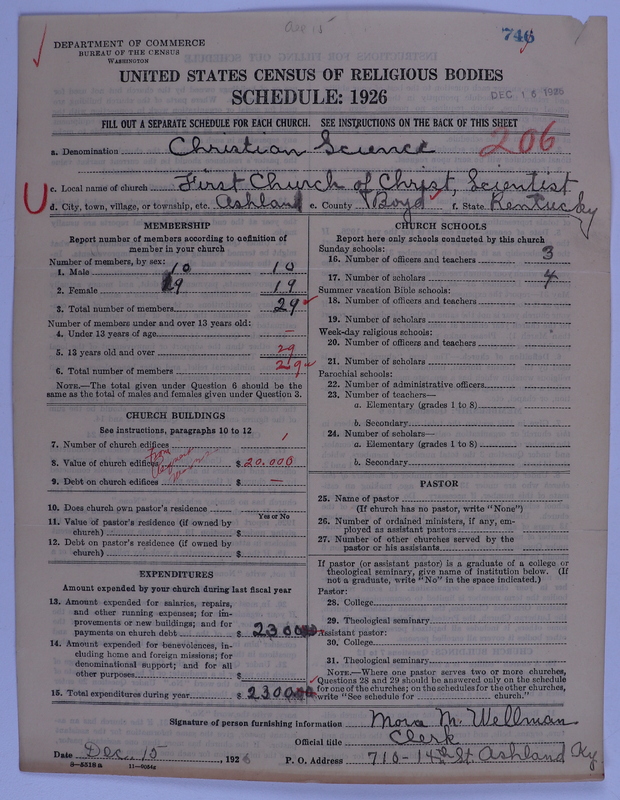 Apr 15
746
DEPARTMENT OF COMMERCE
BUREAU OF THE CENSUS
WASHINGTON
UNITED STATES CENSUS OF RELIGIOUS BODIES
SCHEDULE: 1926
DEC 16 1926
FILL OUT A SEPARATE SCHEDULE FOR EACH CHURCH. SEE INSTRUCTIONS ON THE BACK OF THIS SHEET
206
a. Denomination Christian Science
c. Local name of church First Church of Christ, Scientist
d. City, town, village, or township, etc. Ashland e. County Boyd f. State Kentucky
MEMBERSHIP
Report number of members according to definition of
member in your church
Number of members, by sex:
1. Male 10 10
2. Female 19 19
3. Total number of members 29
Number of members under and over 13 years old:
4. Under 13 years of age —
5. 13 years old and over 29
6. Total number of members 29
NOTE.—The total given under Question 6 should be the
same as the total of males and females given under Question 3.
CHURCH BUILDINGS
See instructions, paragraphs 10 to 12
7. Number of church edifices 1
8. Value of church edifices $ 20.000
9. Debt on church edifices $ —
10. Does church own pastor's residence
Yes or No
11. Value of pastor's residence (if owned by
church) $
12. Debt on pastor's residence (if owned by
church) $
EXPENDITURES
Amount expended by your church during last fiscal year
13. Amount expended for salaries, repairs,
and other running expenses; for im-
provements or new buildings; and for
payments on church debt $ 2300
14. Amount expended for benevolences, in-
cluding home and foreign missions; for
denominational support; and for all
other purposes $
15. Total expenditures during year $ 2300
CHURCH SCHOOLS
Report here only schools conducted by this church
Sunday schools:
16. Number of officers and teachers 3
17. Number of scholars 4
Summer vacation Bible schools:
18. Number of officers and teachers
19. Number of scholars
Week-day religious schools:
20. Number of officers and teachers
21. Number of scholars
Parochial schools:
22. Number of administrative officers
23. Number of teachers—
a. Elementary (grades 1 to 8)
b. Secondary
24. Number of scholars—
a. Elementary (grades 1 to 8)
b. Secondary
PASTOR
25. Name of pastor
(If church has no pastor, write "None")
26. Number of ordained ministers, if any, em-
ployed as assistant pastors
27. Number of other churches served by the
pastor or his assistants
If pastor (or assistant pastor) is a graduate of a college or
theological seminary, give name of institution below. (If
not a graduate, write "No" in the space indicated.)
Pastor:
28. College
29. Theological seminary
Assistant pastor:
30. College
31. Theological seminary
NOTE.—Where one pastor serves two or more churches,
Questions 28 and 29 should be answered only on the schedule
for one of the churches; on the schedules for the other churches,
write "See schedule for church."
Signature of person furnishing information Mora M. Wellman
Official title Clerk
Date Dec. 15, 1926 P. O. Address 710- 14th St. Ashland Ky
8-5518a 11-9054